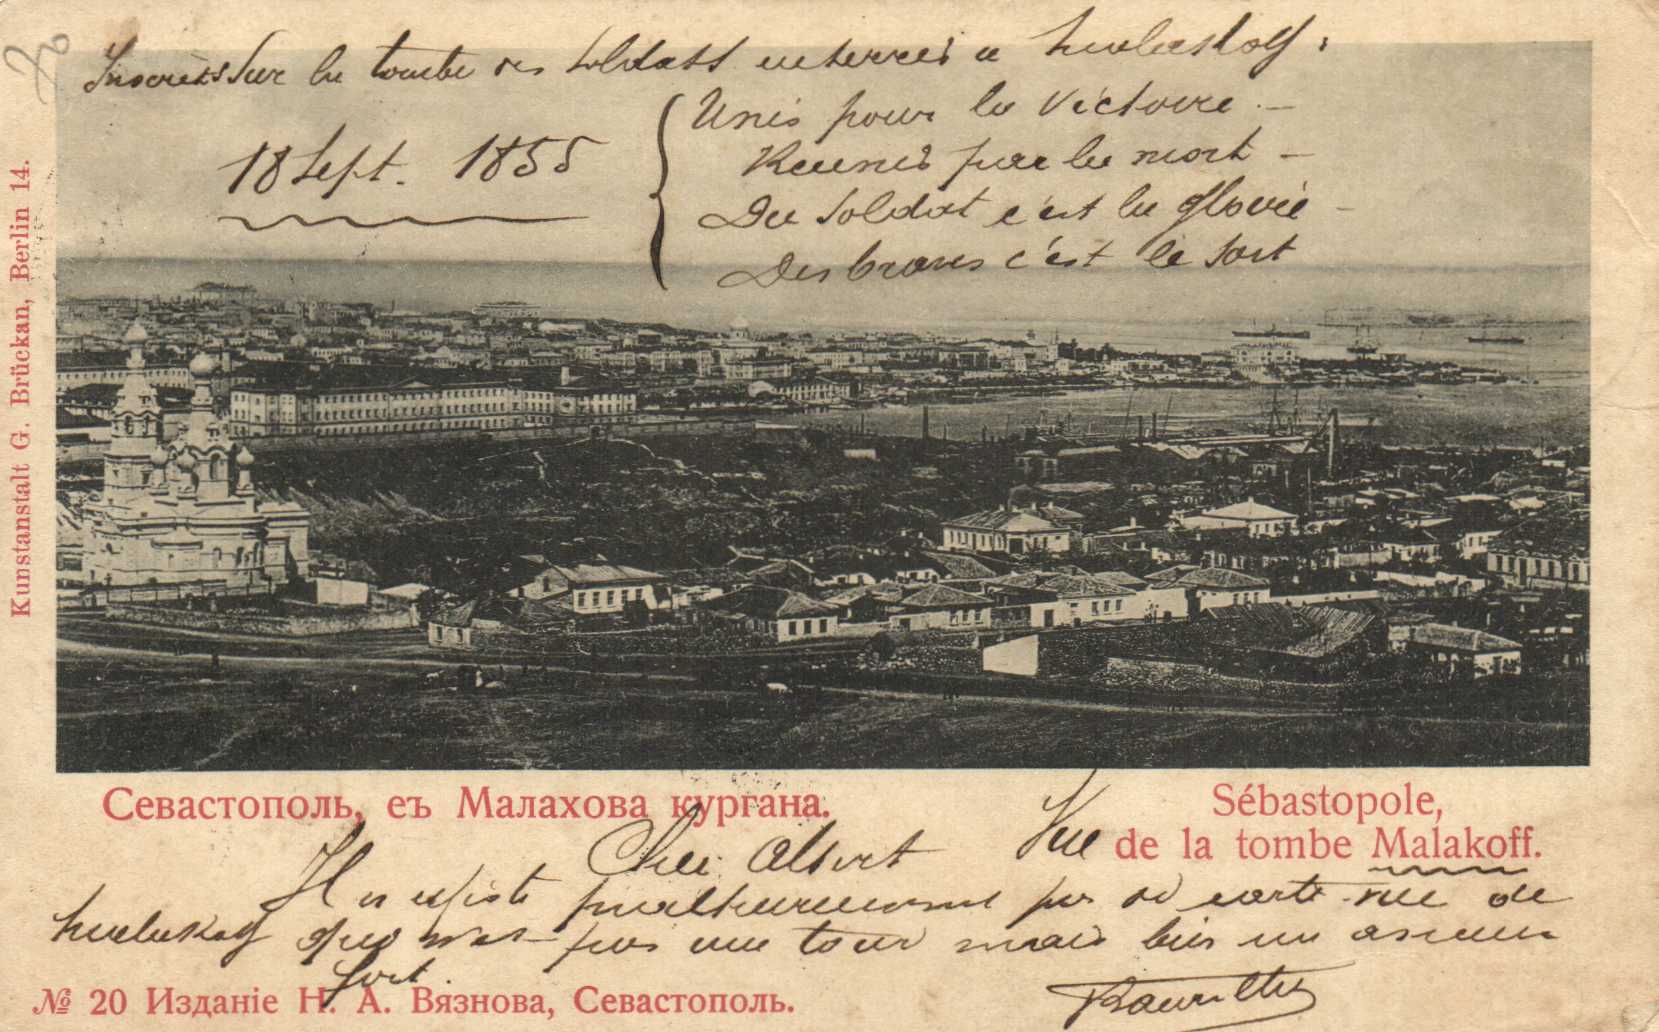 Inscrits sur la tombe des soldats enterrés a Malakoff :
18 Sept. 1855
Unis pour la Victoire —
Reunis par la mort —
Du Soldat c'est la gloire —
Des braves c'est le sort
Севастополь, еъ Малахова кургана.
Sébastopole,
Vue de la tombe Malakoff.
Cher Albert
Il n existe malheureusement pas de carte vue de
Malakoff qui n'est pas une tour mais bien un ancien
fort.
№ 20 Изданіе Н. А. Вязнова, Севастополь.
Kunstanstalt G. Brückan, Berlin 14.